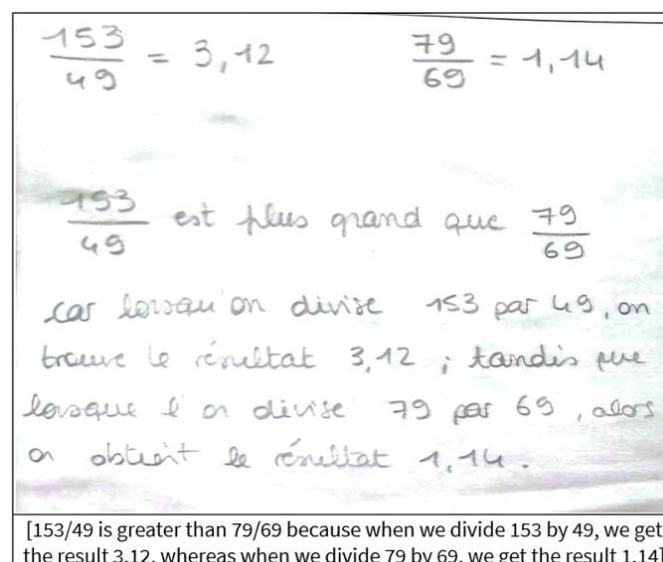 153/49 = 3,12    79/69 = 1,14
153/49 est plus grand que 79/69
car lorsqu'on divise 153 par 49, on
trouve le résultat 3,12 ; tandis que
lorsque l'on divise 79 par 69, alors
on obtient le résultat 1,14.
[153/49 is greater than 79/69 because when we divide 153 by 49, we get
the result 3.12, whereas when we divide 79 by 69, we get the result 1.14]